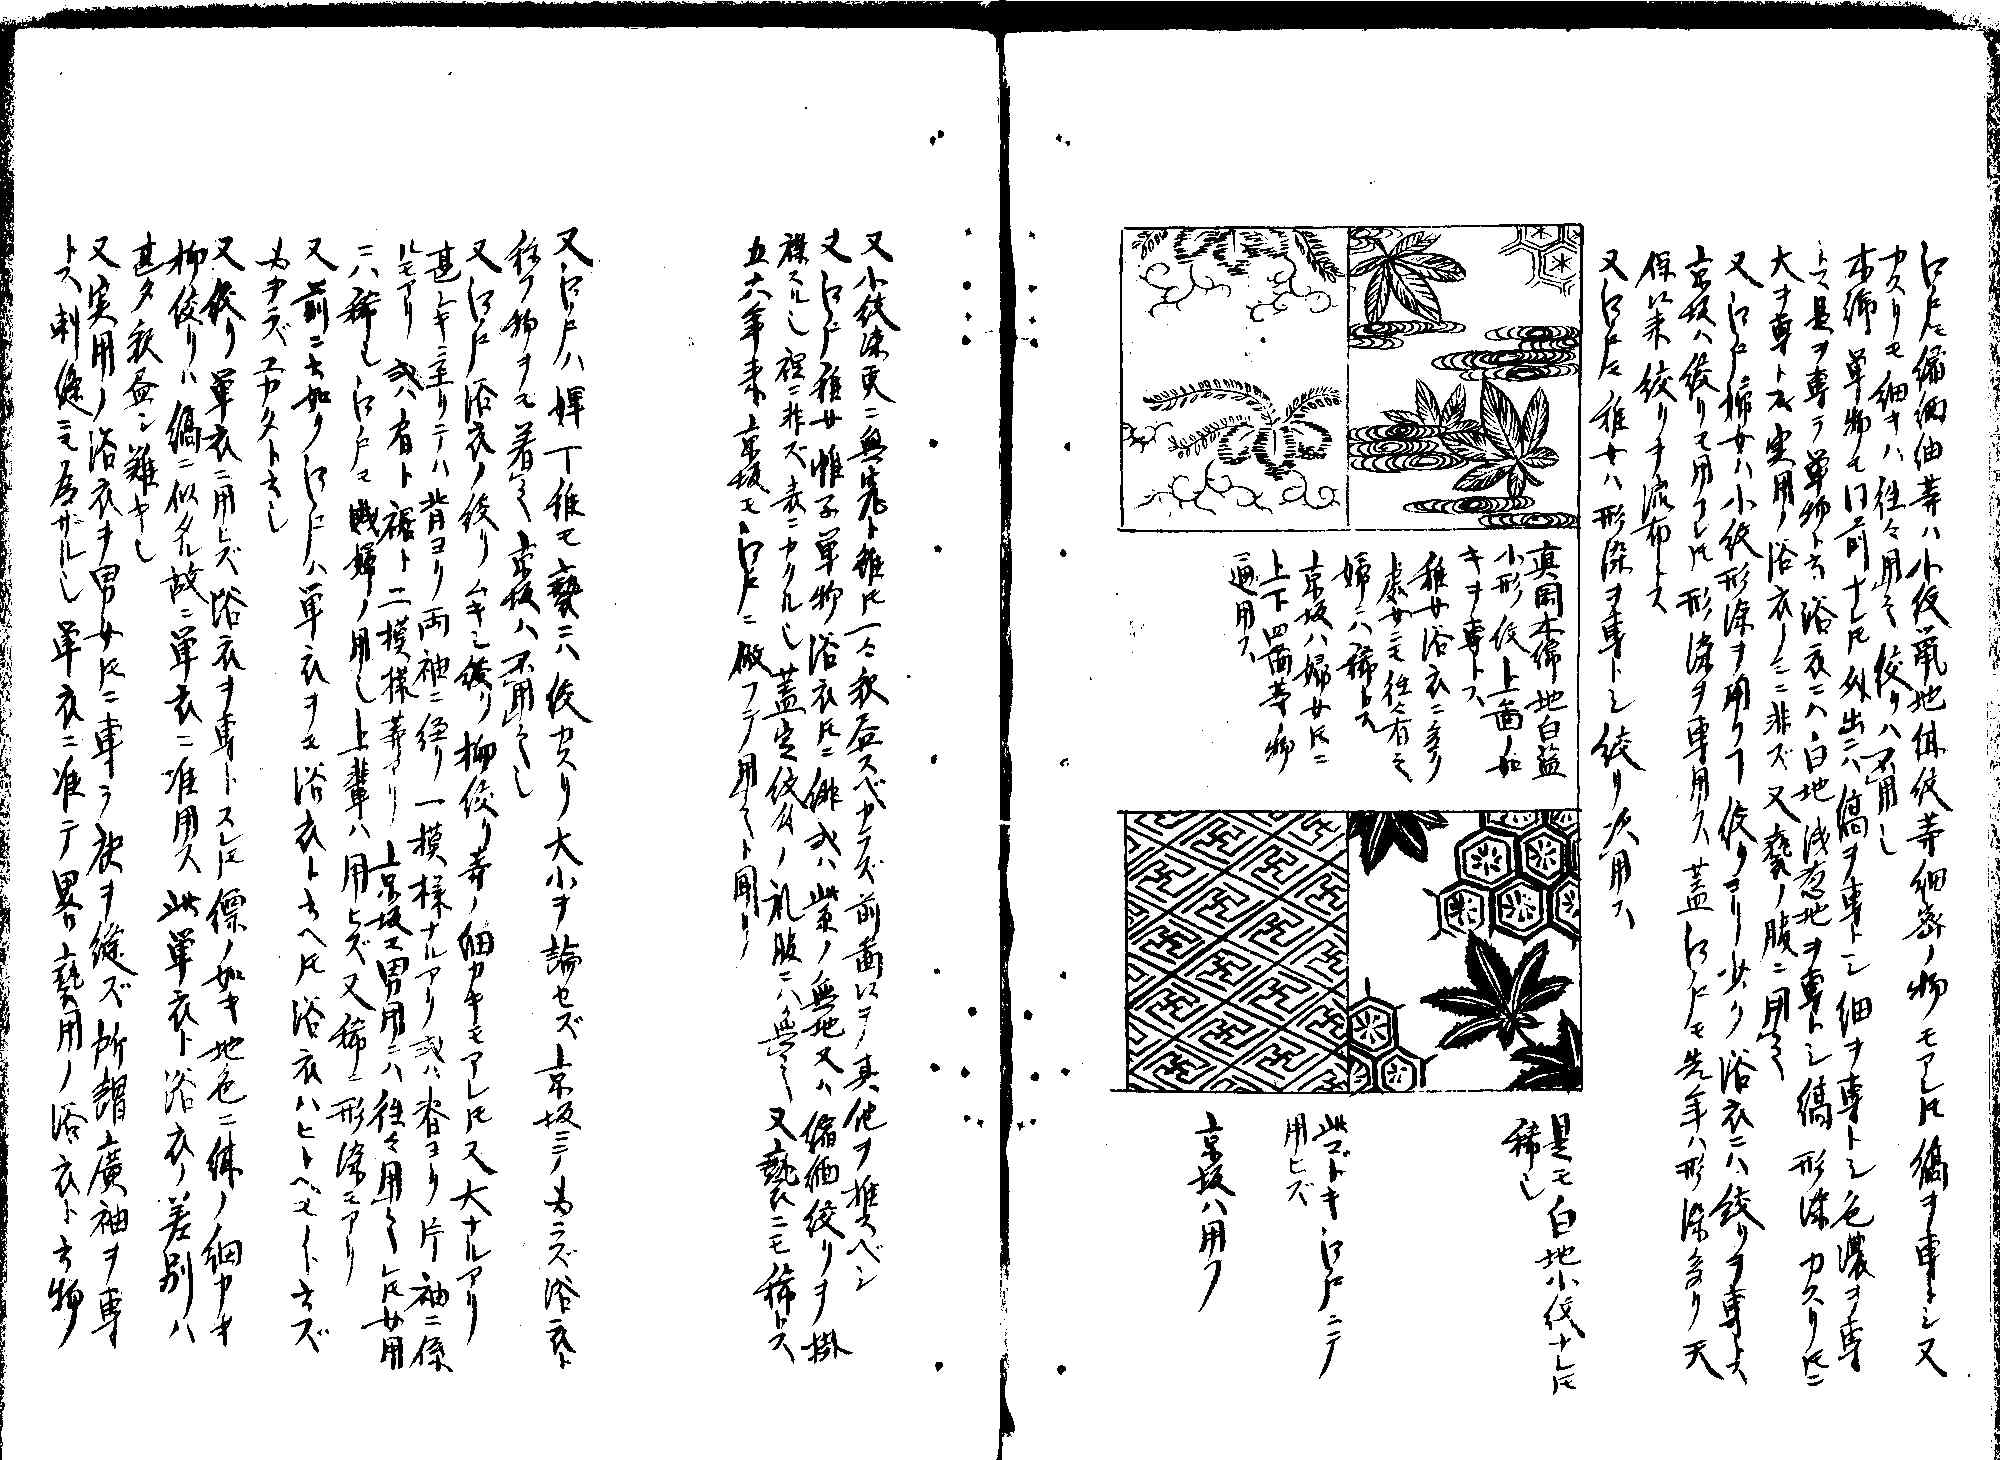 江戸ニ縮緬紬等ハ小紋萠地絣紋等細密ノ物モアレ𪜈縞ヲ専トシ又
カスリモ細キハ往々用之絞リハ不用し
木綿単物モ門前ナレ𪜈外出ニハ縞ヲ専トシ細ヲ専トシ色濃ヲ専
トス是ヲ専ラ単物ト云浴衣ニハ白地浅葱地ヲ専トシ縞形染カスリ𪜈ニ
大ヲ専トス実用ノ浴衣ノミニ非ズ又褻ノ服ニ用之
又江戸婦女ハ小紋形染ヲ用フコ絞リヨリ少ク浴衣ニハ絞リヲ専トス
京坂ハ絞リモ用フレ𪜈形染ヲ専用ス蓋江戸モ先年ハ形染多リ天
保以来絞リヲ流布トス
又江戸ニ稚女ハ形染ヲ専トシ絞リ次用ス
真岡木綿地白藍
小形紋上図如
キヲ専トス
稚女浴衣ニ多ク
処女ニモ往々有之
婦ニハ稀トス
京坂ハ婦女𪜈ニ
上下四図等ノ物
通用ス
是モ白地小紋ナレ𪜈
稀し
此ゴトキ江戸ニテ
用ヒズ
京坂ハ用フ
又小紋染更ニ無先ト雖𪜈一々枚挙スベカラズ前図以テ其他ヲ推スベシ
又江戸稚女帷子単物浴衣𪜈ニ緋或ハ紫ノ無地又ハ縮緬絞リヲ掛
襟スルし裡ニ非ズ表ニカクルし蓋定紋付ノ礼服ニハ無之又褻ニモ稀トス
五六年来京坂モ江戸ニ倣フテ用之ト聞リ
又江戸ハ婢丁稚モ褻ニハ絞カスリ大小ヲ論セズ京坂ニテ為ラズ浴衣ト
種フ物ヲモ着之京坂ハ不用之し
又江戸浴衣ノ絞リムキミ絞リ柳絞リ等ノ細カキモアレ𪜈又大ナルアリ
甚シキニ至リテハ背ヨリ両袖ニ径リ一模様ナルアリ或ハ脊ヨリ片袖ニ係
ルモアリ或ハ肩ト裾ト二模様等アリ京坂モ男用ニハ往々用之レ𪜈女用
ニハ稀し江戸モ賤婦ノ用し上輩ハ用ヒズ又稀ニ形染モアリ
又前ニ云如ク江戸ハ単衣ヲモ浴衣ト云ヘ𪜈浴衣ハヒトヘモノト云ズ
為ヲラズユカタト云し
又絞リ単衣ニ用ヒズ浴衣ヲ専トスレ𪜈縹ノ如キ地色ニ絣ノ細カキ
柳絞リハ縞ニ似タル故ニ単衣ニ准用ス此単衣ト浴衣ノ差別ハ
甚タ枚挙シ難キし
又実用ノ浴衣ヲ男女𪜈ニ専ラ袂ヲ縫ズ所謂広袖ヲ専
トス刺縫ニモ為ザルし単衣ニ准テ畧褻用ノ浴衣ト云物